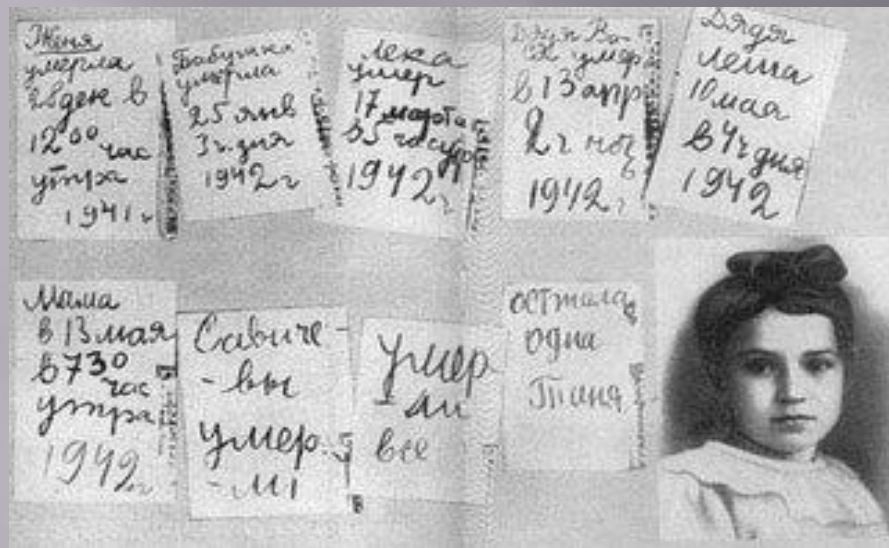 Женя
умерла
28 ден в
12 00 час
утра
1941 г
Бабушка
умерла
25 янв
3 ч. дня
1942 г
Лека
умер
17 марта
в 5 час утр
1942 г
Дядя Ва
умер
в 13 апр
2 ч ноч
1942 г
Дядя
Леша
10 мая
в 4 ч дня
1942
Мама
в 13 мая
в 730
час
утра
1942 г
Савиче-
-вы
умер
-ли
Умер
-ли
все
осталась
одна
Таня